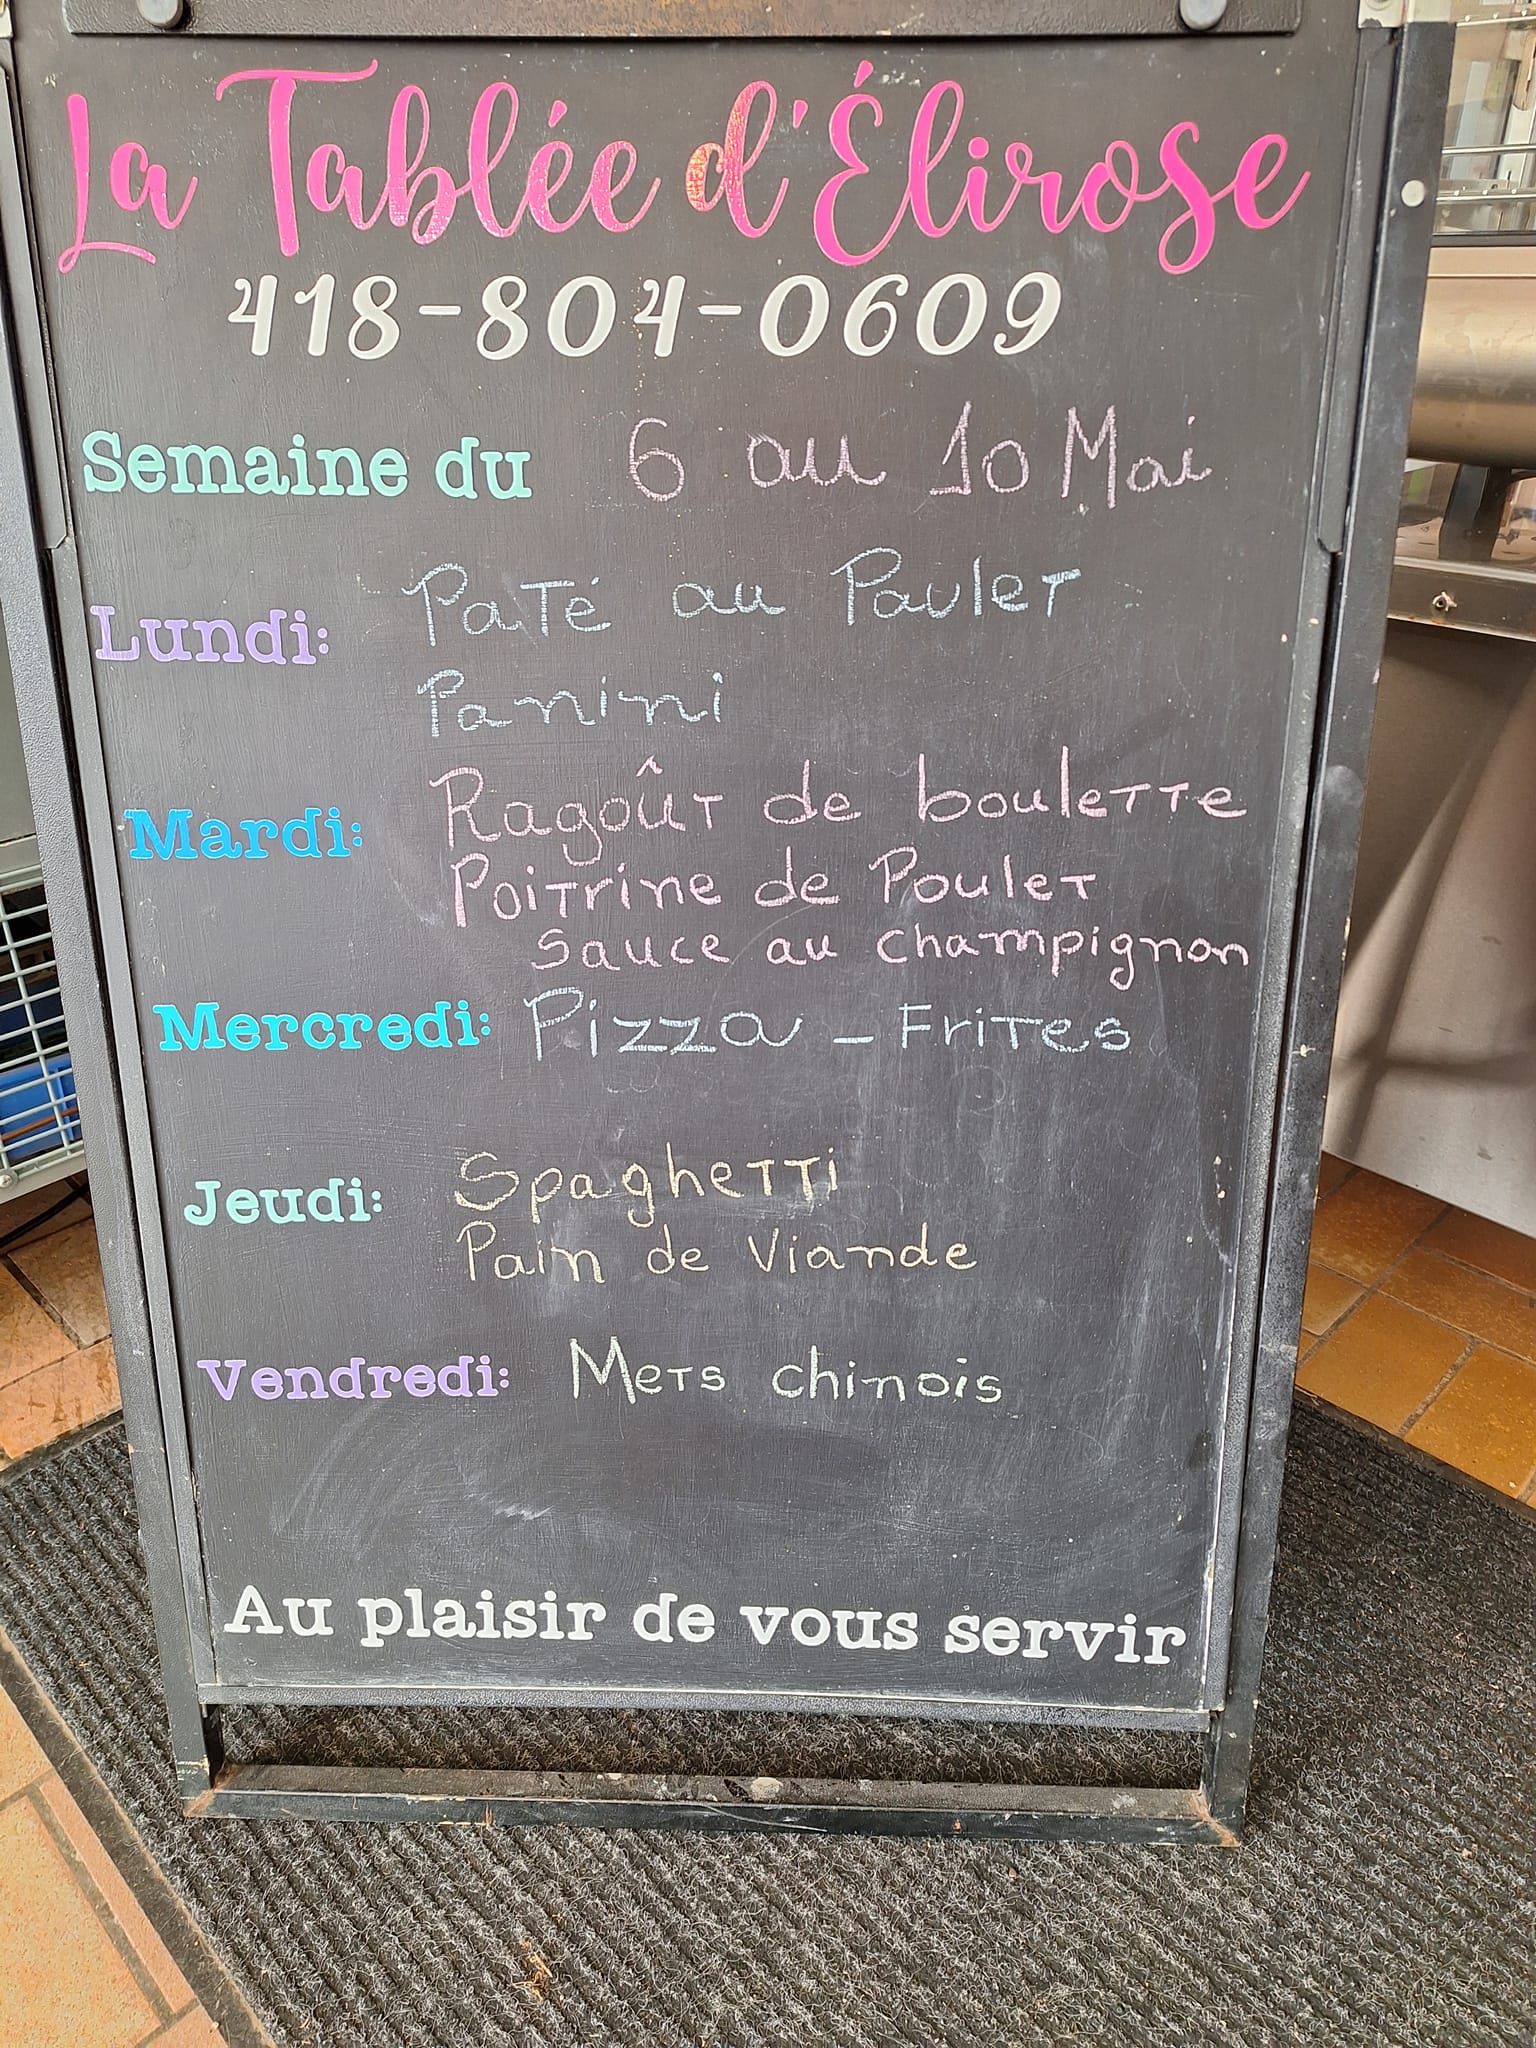 La Tablée d'Élirose
418-804-0609
Semaine du 6 au 10 Mai
Lundi: Paté au Poulet
Panini
Mardi: Ragoût de boulette
Poitrine de Poulet
sauce au champignon
Mercredi: Pizza - Frites
Jeudi: Spaghetti
Pain de viande
Vendredi: Mets chinois
Au plaisir de vous servir